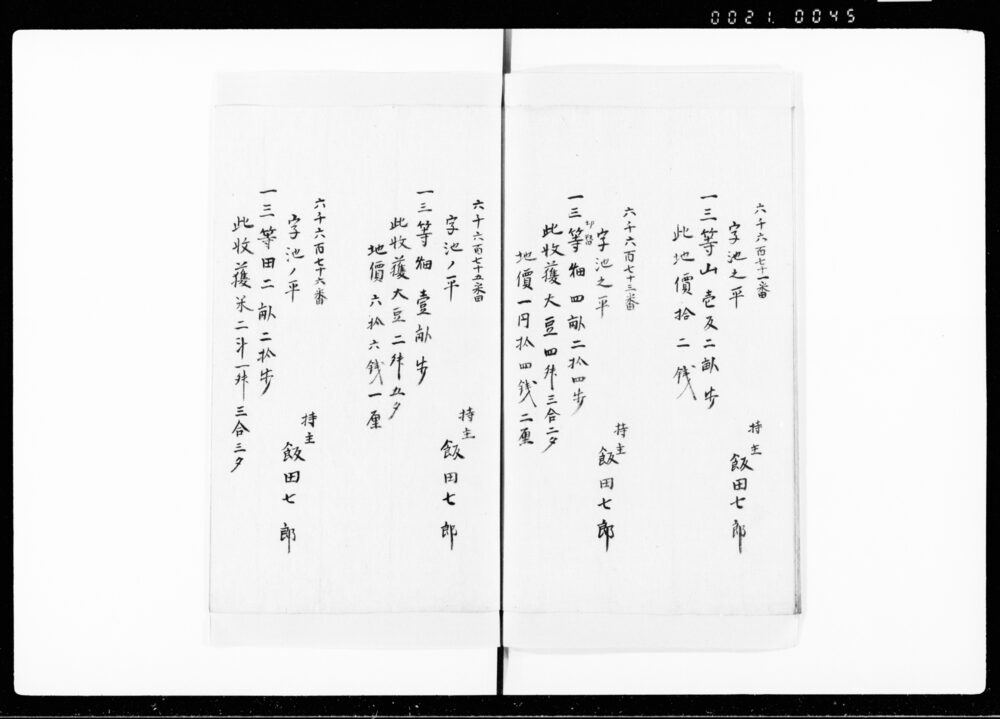 0021. 0045
六千六百七十一番
字池之平
持主 飯田七郎
一三等山壱反二畝歩
此地價拾二銭
六千六百七十三番
字池之平
持主 飯田七郎
一三等畑四畝二拾四歩
此收獲大豆四舛三合二夕
地價一円拾四銭二厘
六千六百七十五番
字池ノ平
持主 飯田七郎
一三等畑壹畝歩
此收獲大豆二舛五夕
地價六拾六銭一厘
六千六百七十六番
字池ノ平
持主 飯田七郎
一三等田二畝二拾歩
此收獲米二斗一舛三合三夕